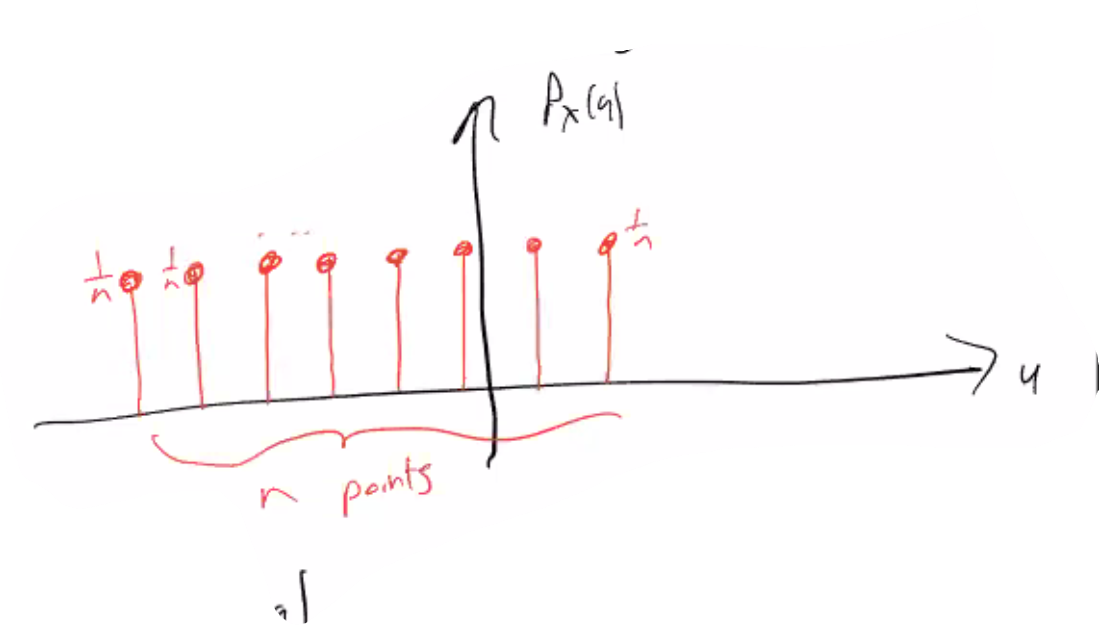 P_X(u)
1/n 1/n ---- 1/n
u
n points